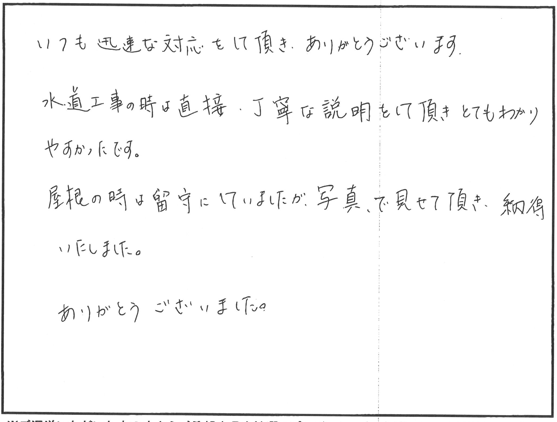 いつも迅速な対応をして頂き、ありがとうございます。
水道工事の時は直接、丁寧な説明をして頂きとてもわかり
やすかったです。
屋根の時は留守にしていましたが、写真で見せて頂き、納得
いたしました。
ありがとうございました。